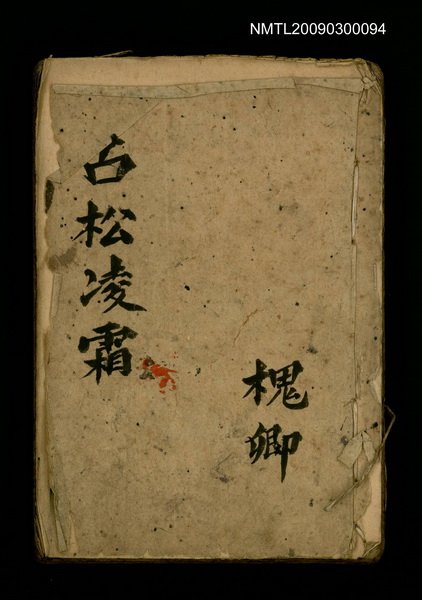 NMTL20090300094
古松凌霜
槐卿